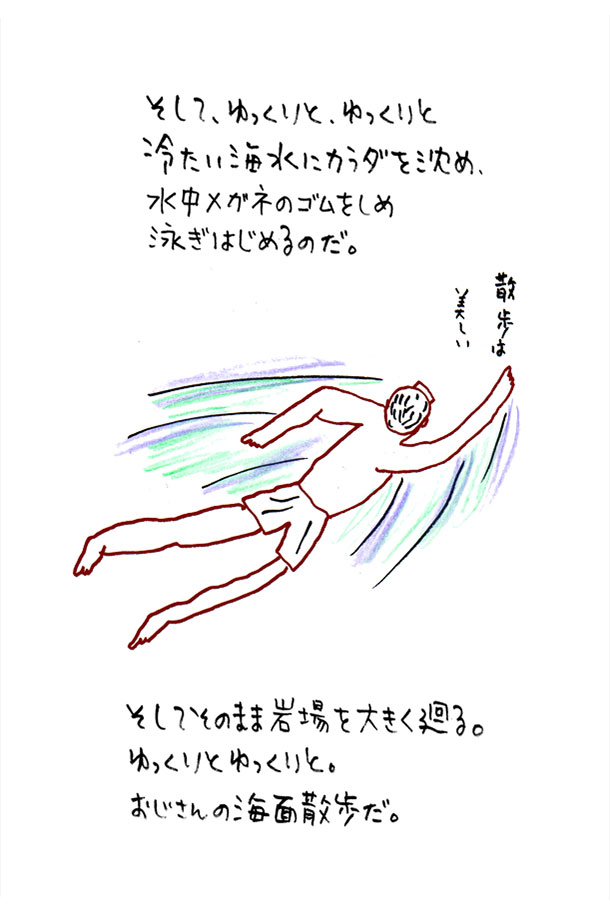 そして、ゆっくりと、ゆっくりと
冷たい海水にカラダを沈め、
水中メガネのゴムをしめ
泳ぎはじめるのだ。
散歩は
美しい
そしてそのまま岩場を大きく廻る。
ゆっくりとゆっくりと。
おじさんの海面散歩だ。